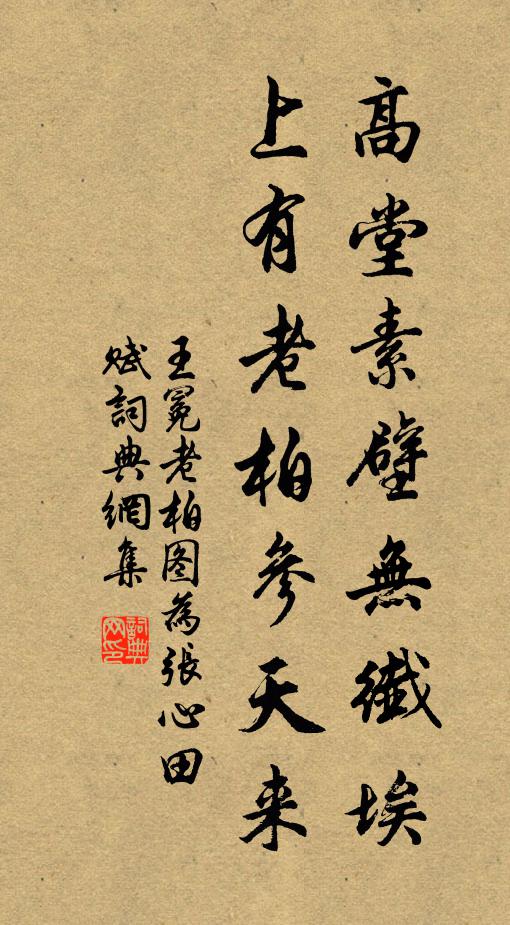 高堂素壁無纖埃
上有老柏參天来
王冕老柏图為張心田
赋詞典網集
詞典网印